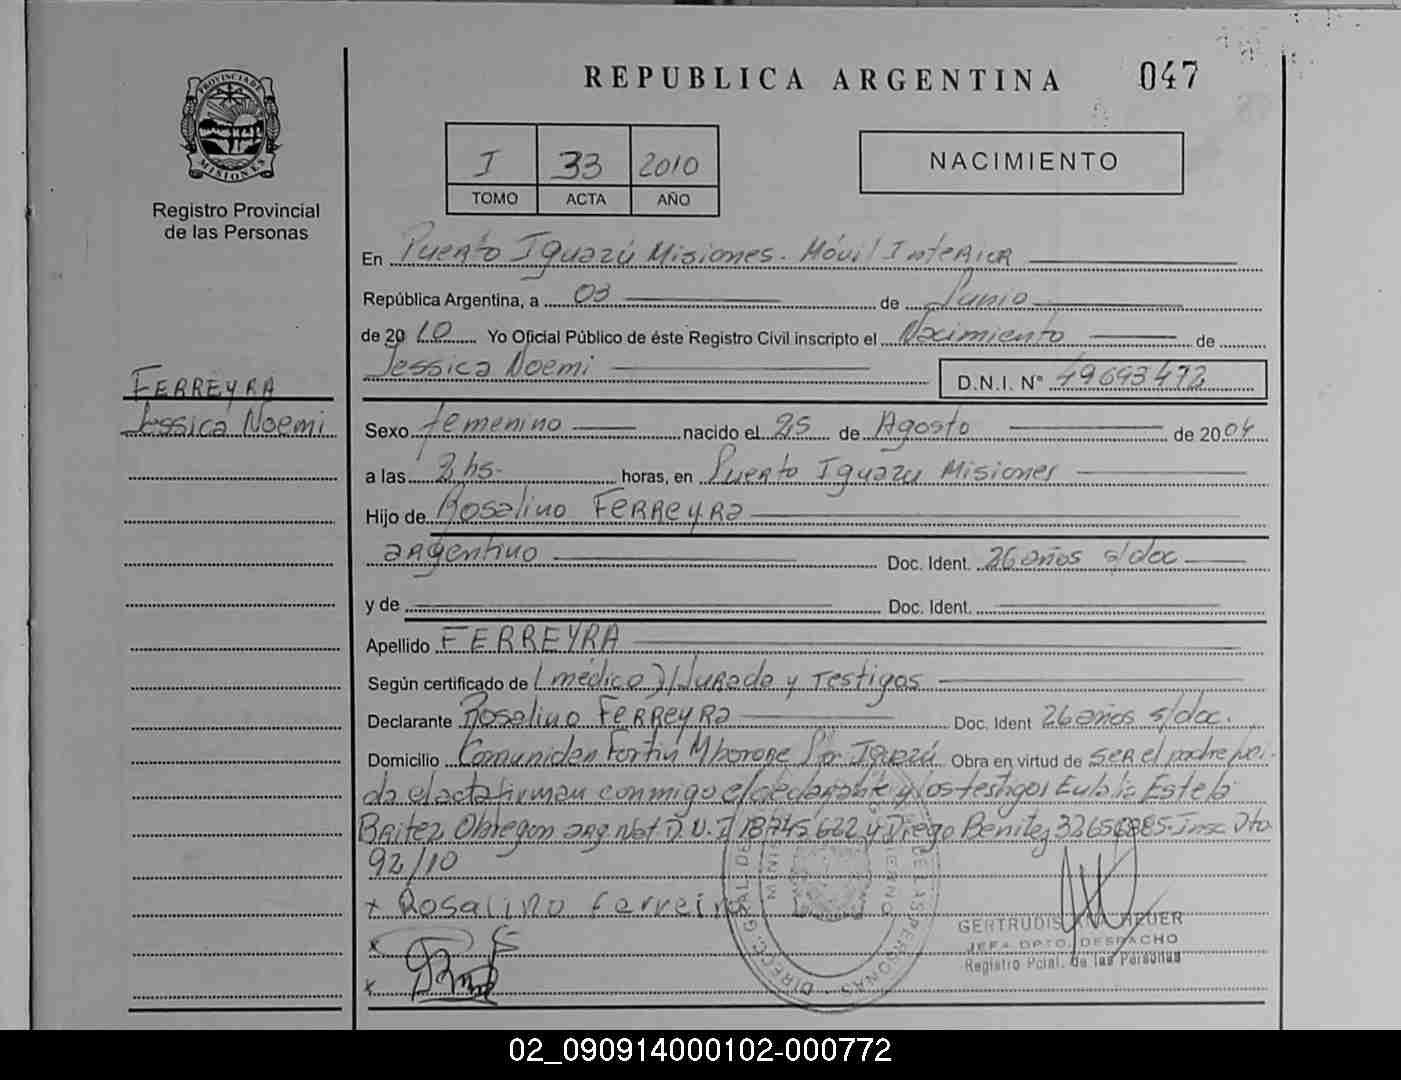 REPUBLICA ARGENTINA 047
PROVINCIA DE MISIONES
Registro Provincial
de las Personas
I 33 2010
TOMO ACTA AÑO
NACIMIENTO
En Puerto Iguazú Misiones. Móvil Interior
República Argentina, a 03 de Junio
de 2010 Yo Oficial Público de éste Registro Civil inscripto el Nacimiento de
Jessica Noemi D.N.I. N° 49693472
FERREYRA
Jessica Noemi
Sexo femenino nacido el 25 de Agosto de 2004
a las 2 hs. horas, en Puerto Iguazu Misiones
Hijo de Rosalino FERREYRA
argentino Doc. Ident. 26 años s/doc
y de Doc. Ident.
Apellido FERREYRA
Según certificado de (médico)/Jurada y Testigos
Declarante Rosalino FERREYRA Doc. Ident 26 años s/doc.
Domicilio Comunidad Fortin Mborore Pto Iguazú Obra en virtud de ser el padre lei-
da el acta firman conmigo el declarante y los testigos Eulalia Estela
Britez Obregon arg. Nat D.N.I 18745622 y Diego Benitez Insc Dto
92/10
x Rosalino Ferreira
x
x
GERTRUDIS
JEFA DPTO. DESPACHO
Registro Pcial. de las Personas
02_090914000102-000772